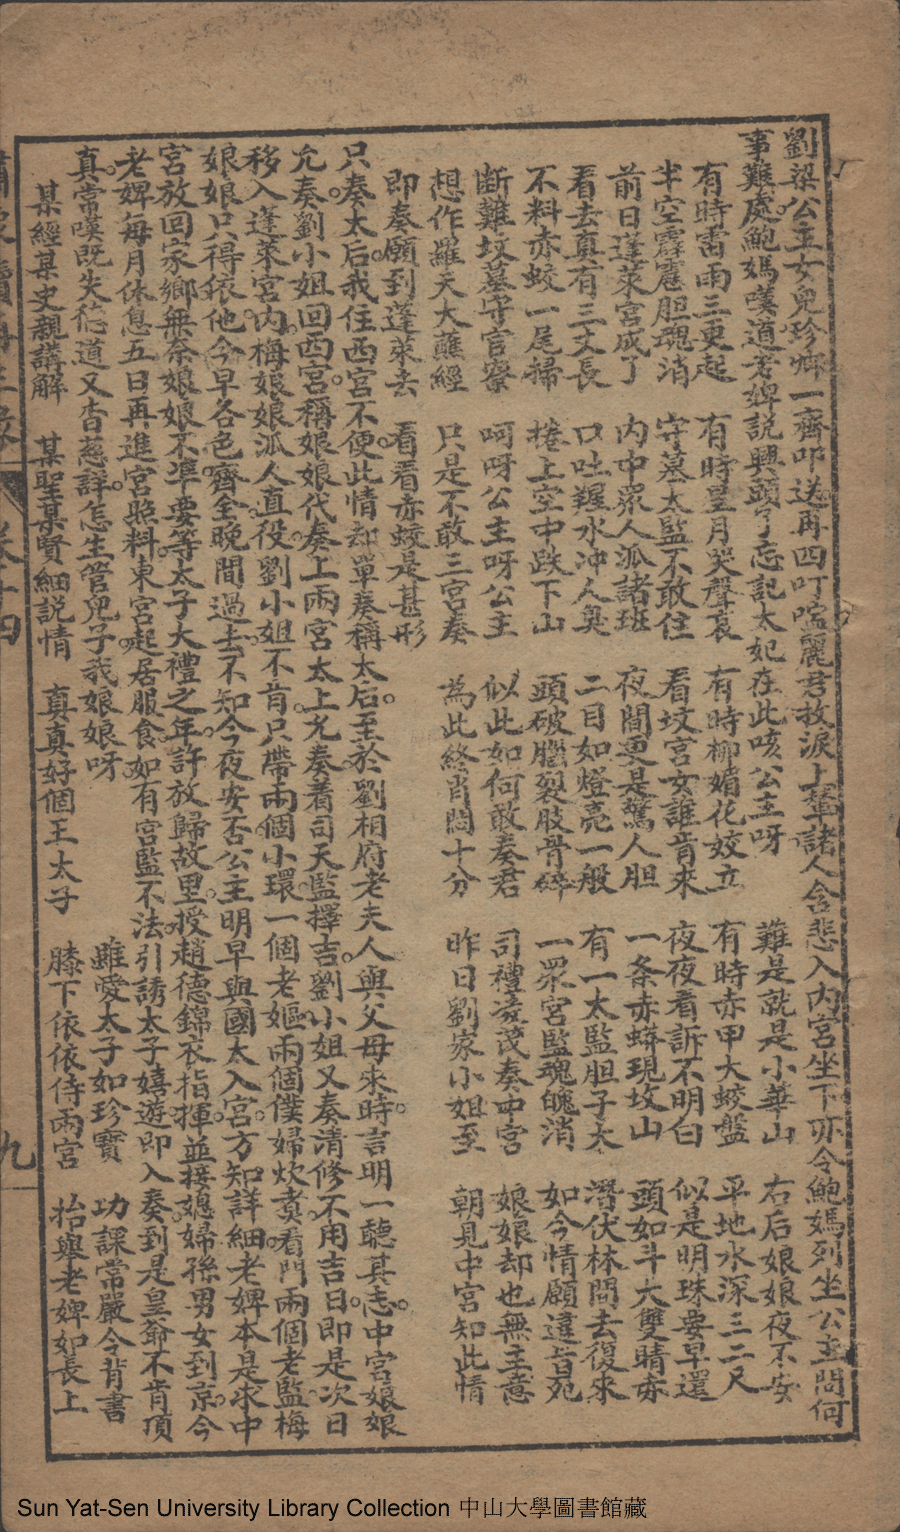 劉梁公主女兒珍卿一齊叩送再四叮嚀麗君救淚上輦諸人含悲入內宮坐下亦令鮑媽列坐公主問何
事難處鮑媽嘆道老婢説興頭了忘記太妃在此咳公主呀 難是就是小華山 右后娘娘夜不安
有時雷雨三更起 有時皇月哭聲哀 有時柳媚花姣立 有時赤甲大蛟盤 平地水深三二尺
半空霹靂胆魂消 守墓太監不敢住 看坟宮女誰肯來 夜夜看訴不明白 似是明珠要早還
前日蓬萊宮成了 內中眾人派諸班 夜間更是驚人胆 一条赤蟒現坟山 頭如斗大雙睛赤
看去真有三丈長 口吐腥水冲人臭 二目如燈亮一般 有一太監胆子大 潛伏林間去復來
不料赤蛟一尾掃 捲上空中跌下山 頭破腦裂肢骨碎 一眾宮監魂魄消 如今情願違旨死
断難坟墓守官寮 呵呀公主呀公主 似此如何敢奏君 司禮凌茂奏中宮 娘娘却也無主意
想作羅天大蘸經 只是不敢三宮奏 為此終宵悶十分 昨日劉家小姐至 朝見中宮知此情
即奏願到蓬萊去 看看赤蛟是甚形
只奏太后我住西宮不便此情却單奏稱太后至於劉相府老夫人與父母來時言明一聽其志中宮娘娘
允奏劉小姐回西宮稱娘娘代奏上兩宮太上允奏着司天監擇吉劉小姐又奏清修不用吉日即是次日
移入蓬萊宮內梅娘娘派人直役劉小姐不肯只帶兩個小環一個老嫗兩個僕婦炊煑看門兩個老監梅
娘娘只得依他今早各色齊全晚間過去不知今夜安否公主明早與國太入宮方知詳細老婢本是求中
宮放回家鄉無奈娘娘不準要等太子大禮之年許放歸故里授趙德錦衣指揮並接媳婦孫男女到京今
老婢每月休息五日再進宮照料東宮起居服食如有宮監不法引誘太子嬉遊即入奏到是皇爺不肯項
真常嘆既失德道又杳慈詳怎生管兒子我娘娘呀 雖愛太子如珍寶 功課常嚴令背書
某經某史親講解 某聖某賢細説情 真真好個王太子 膝下依依侍兩宮 抬舉老婢如長上
卷十四 九